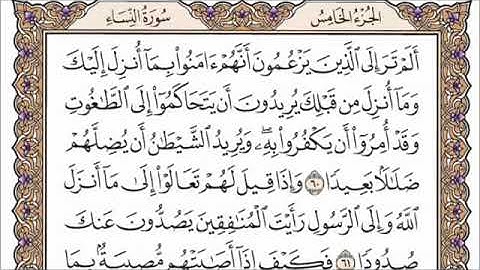 الجزء الخامس سورة النساء
أَلَمْ تَرَ إِلَى ٱلَّذِينَ يَزْعُمُونَ أَنَّهُمْ ءَامَنُوا۟ بِمَآ أُنزِلَ إِلَيْكَ
وَمَآ أُنزِلَ مِن قَبْلِكَ يُرِيدُونَ أَن يَتَحَاكَمُوٓا۟ إِلَى ٱلطَّٰغُوتِ
وَقَدْ أُمِرُوٓا۟ أَن يَكْفُرُوا۟ بِهِۦۖ وَيُرِيدُ ٱلشَّيْطَٰنُ أَن يُضِلَّهُمْ
ضَلَٰلًۢا بَعِيدًا ٦٠ وَإِذَا قِيلَ لَهُمْ تَعَالَوْا۟ إِلَىٰ مَآ أَنزَلَ
ٱللَّهُ وَإِلَى ٱلرَّسُولِ رَأَيْتَ ٱلْمُنَٰفِقِينَ يَصُدُّونَ عَنكَ
صُدُودًا ٦١ فَكَيْفَ إِذَآ أَصَٰبَتْهُم مُّصِيبَةٌۢ بِمَا